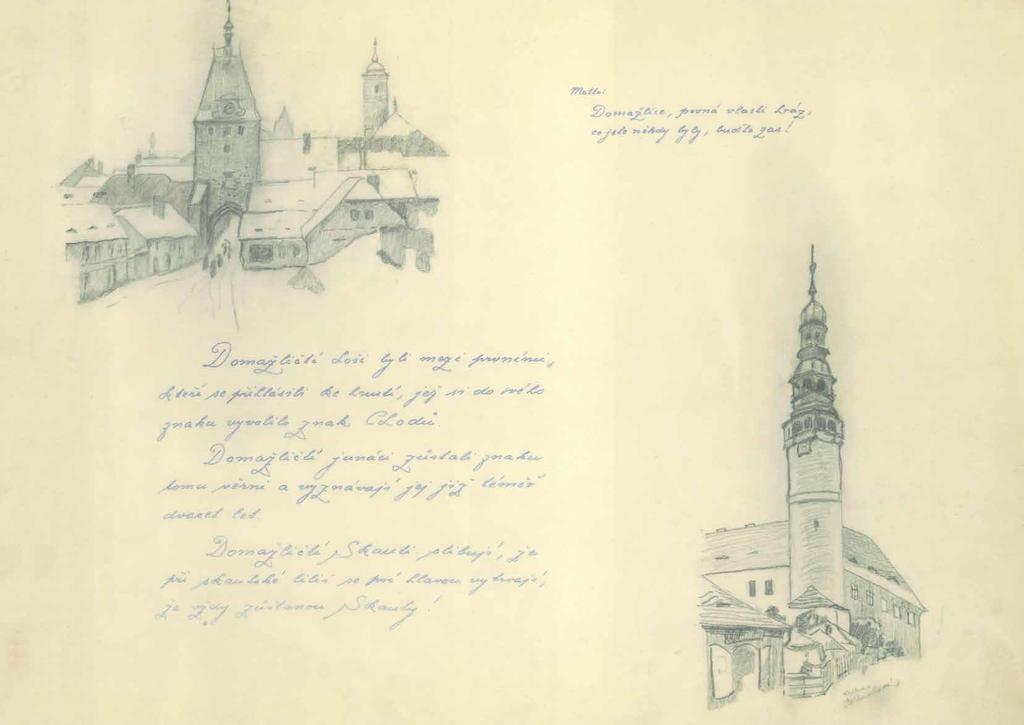 Motto:
Domažlice, pevná vlasti hráz,
co jste někdy byly, buďte zas!
Domažličtí hoši byli mezi prvními,
kteří se přihlásili ke hnutí, jež si do svého
znaku vyvolilo znak Chodů.
Domažličtí junáci zůstali znaku
tomu věrni a vyznávají jej již téměř
dvacet let.
Domažličtí Skauti slibují, že
při skautské lilii se psí hlavou vytrvají,
že vždy zůstanou Skauty!